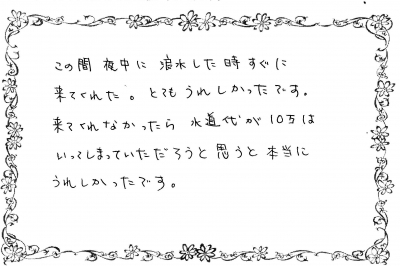 この間 夜中に 浪水した時 すぐに
来てくれた。とてもうれしかったです。
来てくれなかったら 水道代が10万は
いってしまっていただろうと思うと本当に
うれしかったです。